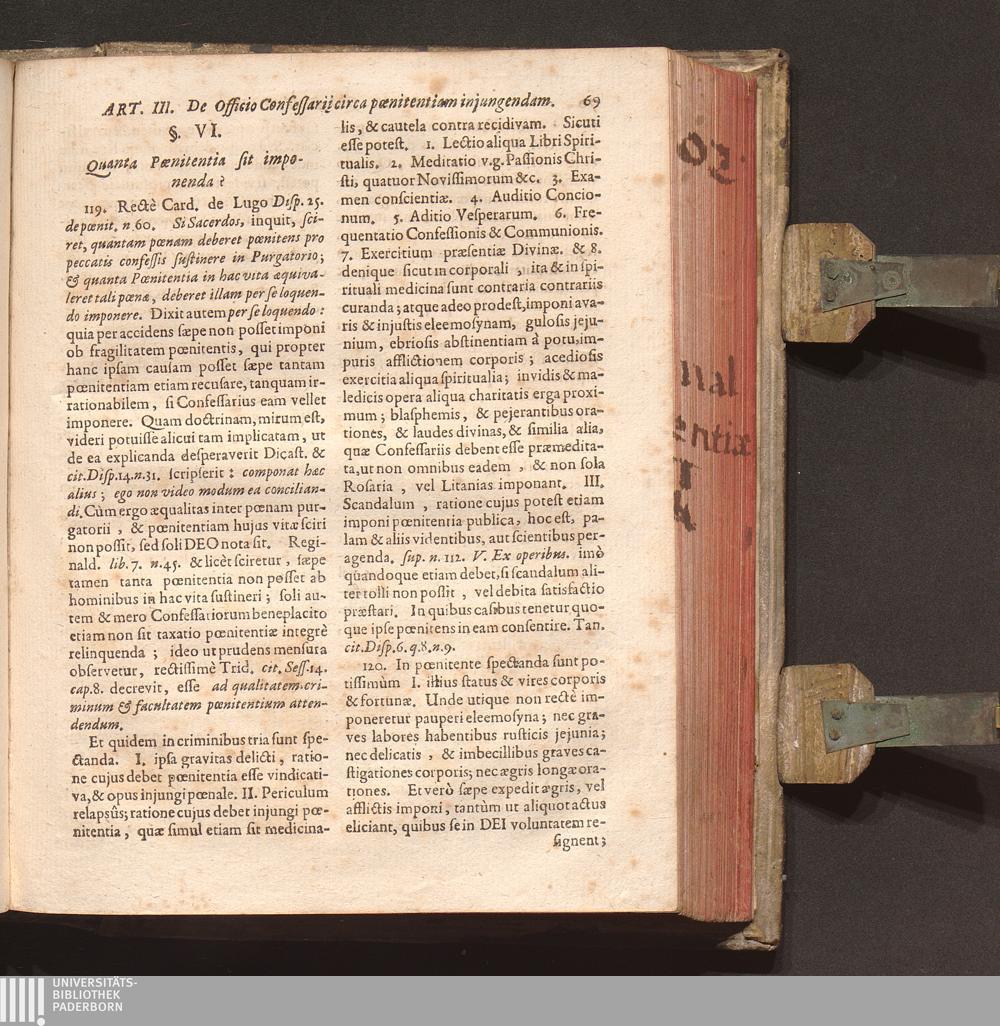 ART. III. De Officio Confessarij circa pœnitentiam injungendam. 69
§. VI.
Quanta Pœnitentia sit impo-
nenda?
119. Rectè Card. de Lugo Disp. 25.
de pœnit. n. 60. Si Sacerdos, inquit, sci-
ret, quantam pœnam deberet pœnitens pro
peccatis confessis sustinere in Purgatorio;
& quanta Pœnitentia in hac vita æquiva-
leret tali pœnæ, deberet illam per se loquen-
do imponere. Dixit autem per se loquendo:
quia per accidens sæpe non posset imponi
ob fragilitatem pœnitentis, qui propter
hanc ipsam causam posset sæpe tantam
pœnitentiam etiam recusare, tanquam ir-
rationabilem, si Confessarius eam vellet
imponere. Quam doctrinam, mirum est,
videri potuisse alicui tam implicatam, ut
de ea explicanda desperaverit Dicast. &
cit. Disp. 14. n. 31. scripserit: componat hæc
alius; ego non video modum ea concilian-
di. Cùm ergo æqualitas inter pœnam pur-
gatorii, & pœnitentiam hujus vitæ sciri
non possit, sed soli DEO nota sit. Regi-
nald. lib. 7. n. 45. & licèt sciretur, sæpe
tamen tanta pœnitentia non posset ab
hominibus in hac vita sustineri; soli au-
tem & mero Confessariorum beneplacito
etiam non sit taxatio pœnitentiæ integrè
relinquenda; ideo ut prudens mensura
observetur, rectissimè Trid. cit. Sess. 14.
cap. 8. decrevit, esse ad qualitatem cri-
minum & facultatem pœnitentium atten-
dendum.
Et quidem in criminibus tria sunt spe-
ctanda. I. ipsa gravitas delicti, ratio-
ne cujus debet pœnitentia esse vindicati-
va, & opus injungi pœnale. II. Periculum
relapsûs; ratione cujus debet injungi pœ-
nitentia, quæ simul etiam sit medicina-
lis, & cautela contra recidivam. Sicuti
esse potest. 1. Lectio aliqua Libri Spiri-
tualis. 2. Meditatio v.g. Passionis Chri-
sti, quatuor Novissimorum &c. 3. Exa-
men conscientiæ. 4. Auditio Concio-
num. 5. Aditio Vesperarum. 6. Fre-
quentatio Confessionis & Communionis.
7. Exercitium præsentiæ Divinæ. & 8.
denique sicut in corporali, ita & in spi-
rituali medicina sunt contraria contrariis
curanda; atque adeo prodest, imponi ava-
ris & injustis eleemosynam, gulosis jeju-
nium, ebriosis abstinentiam à potu, im-
puris afflictionem corporis; acediosis
exercitia aliqua spiritualia; invidis & ma-
ledicis opera aliqua charitatis erga proxi-
mum; blasphemis, & pejerantibus ora-
tiones, & laudes divinas, & similia alia,
quæ Confessariis debent esse præmedita-
ta, ut non omnibus eadem, & non sola
Rosaria, vel Litanias imponant. III.
Scandalum, ratione cujus potest etiam
imponi pœnitentia publica, hoc est, pa-
lam & aliis videntibus, aut scientibus per-
agenda. sup. n. 112. V. Ex operibus. imò
quandoque etiam debet, si scandalum ali-
ter tolli non possit, vel debita satisfactio
præstari. In quibus casibus tenetur quo-
que ipse pœnitens in eam consentire. Tan.
cit. Disp. 6. q. 8. n. 9.
120. In pœnitente spectanda sunt po-
tissimùm I. illius status & vires corporis
& fortunæ. Unde utique non rectè im-
poneretur pauperi eleemosyna; nec gra-
ves labores habentibus rusticis jejunia;
nec delicatis, & imbecillibus graves ca-
stigationes corporis; nec ægris longæ ora-
tiones. Et verò sæpe expedit ægris, vel
afflictis imponi, tantùm ut aliquot actus
eliciant, quibus se in DEI voluntatem re-
signent;
nal
entiæ
UNIVERSITÄTS-
BIBLIOTHEK
PADERBORN